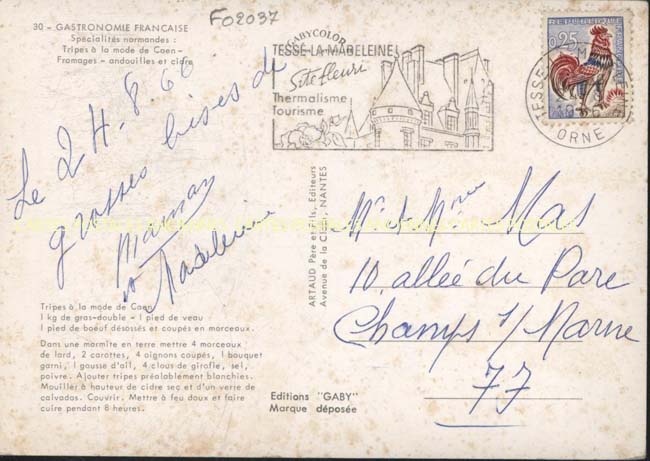 30 - GASTRONOMIE FRANCAISE
Spécialités normandes :
Tripes à la mode de Caen -
Fromages - andouilles et cidre
FO2037
GABYCOLOR
TESSE-LA-MADELEINE
Site fleuri
Thermalisme
Tourisme
REPUBLIQUE
0,25
TESSE
ORNE
Le 24.8.66
grosses bises de
Maman
Madeleine
Tripes à la mode de Caen
1 kg de gras-double - 1 pied de veau
1 pied de boeuf désossés et coupés en morceaux.
Dans une marmite en terre mettre 4 morceaux
de lard, 2 carottes, 4 oignons coupés, 1 bouquet
garni, 1 gousse d'ail, 4 clous de girofle, sel,
poivre. Ajouter tripes préalablement blanchies.
Mouiller à hauteur de cidre sec et d'un verre de
calvados. Couvrir. Mettre à feu doux et faire
cuire pendant 8 heures.
ARTAUD Père et Fils, Editeurs
Avenue de la Close, NANTES
Editions "GABY"
Marque déposée
Mr & Mme Mas
10. allée du Parc
Champs s/ Marne
77